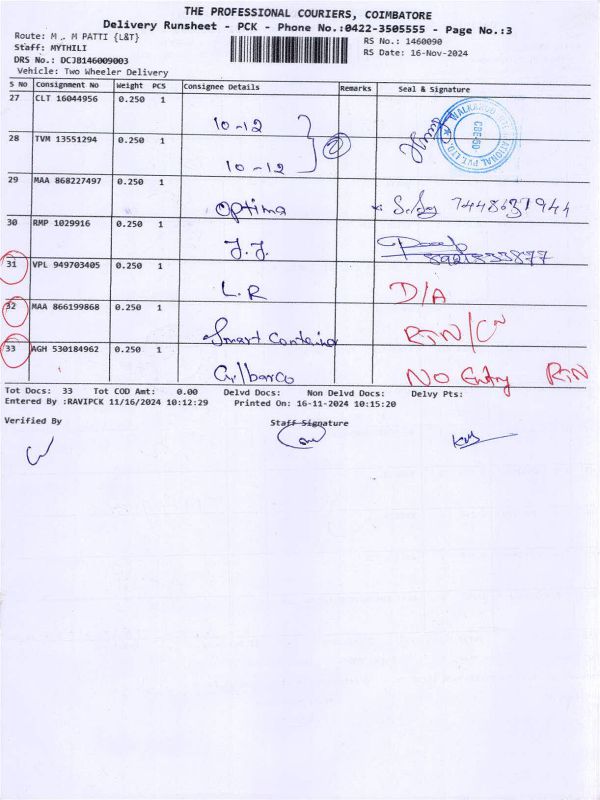 THE PROFESSIONAL COURIERS, COIMBATORE
Delivery Runsheet - PCK - Phone No.:0422-3505555 - Page No.:3
Route: M . M PATTI {L&T}
RS No.: 1460090
Staff: MYTHILI
RS Date: 16-Nov-2024
DRS No.: DCJB146009003
Vehicle: Two Wheeler Delivery
S No Consignment No Weight PCS Consignee Details Remarks Seal & Signature
27 CLT 16044956 0.250 1
10-12
28 TVM 13551294 0.250 1
10-12 2
WALKAROO INTERNATIONAL PVT. LTD.
CBE-50
29 MAA 868227497 0.250 1
Optima 7448631944
30 RMP 1029916 0.250 1
J.J. 8921833877
31 VPL 949703405 0.250 1
L.R D/A
32 MAA 866199868 0.250 1
Smart Container RTN/CN
33 AGH 530184962 0.250 1
Gilbarco NO Entry RTN
Tot Docs: 33 Tot COD Amt: 0.00 Delvd Docs: Non Delvd Docs: Delvy Pts:
Entered By :RAVIPCK 11/16/2024 10:12:29 Printed On: 16-11-2024 10:15:20
Verified By Staff Signature